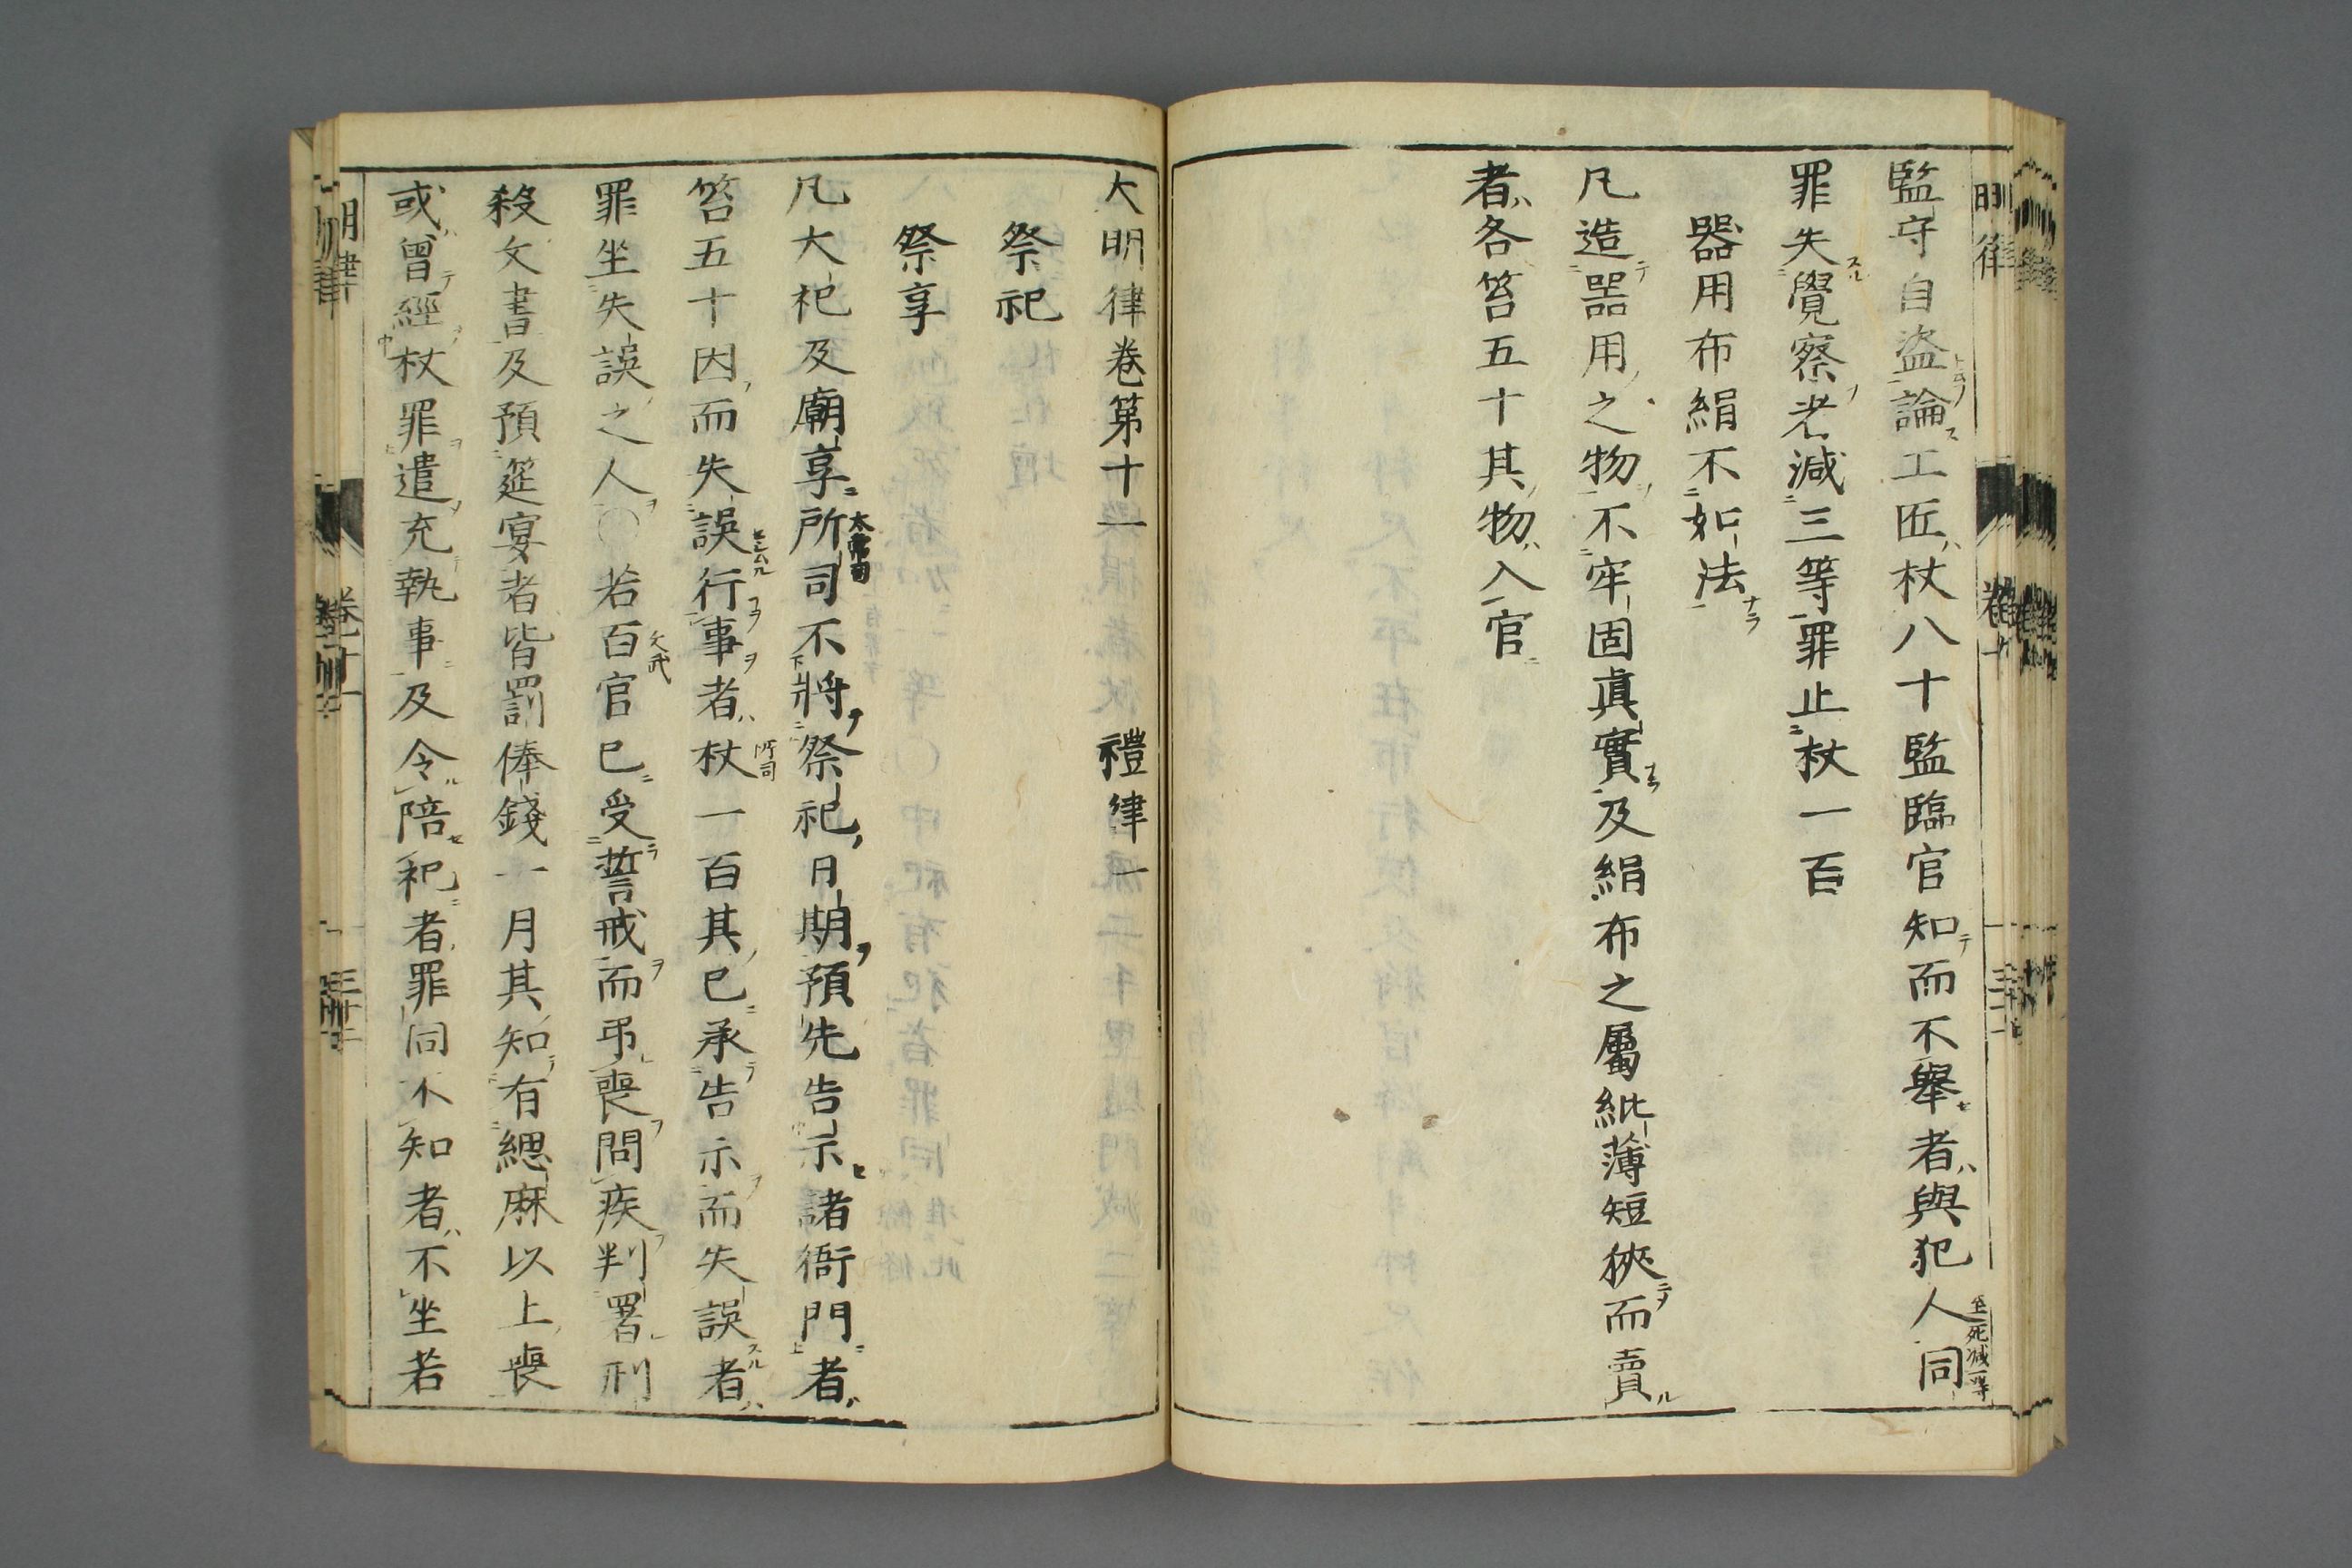 監守自盗論工匠杖八十監臨官知而不擧者與犯人同
至死減一等
罪失覺察者減三等罪止杖一百
器用布絹不如法
凡造器用之物不牢固眞實及絹布之屬紕薄短狹而賣
者各笞五十其物入官
大明律卷第十一 禮律一
祭祀
祭享
凡大祀及廟享所司不將祭祀日期預先告示諸衙門者
太常司
笞五十因而失誤行事者杖一百其已承告示而失誤者
所司
罪坐失誤之人○若百官已受誓戒而弔喪問疾判署刑
文武
殺文書及預筵宴者皆罰俸錢一月其知有緦麻以上喪
或曾經杖罪遣充執事及令陪祀者罪同不知者不坐若
明律 卷十一 三十二